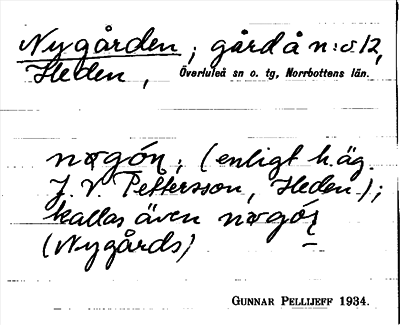 Nygården; gård å n:o 12,
Heden, Överluleå sn o. tg, Norrbottens län.
nøgóŋ; (enligt h.äg.
J. V. Pettersson, Heden.);
kallas även nøgóʂ
(Nygårds)
GUNNAR PELLIJEFF 1934.